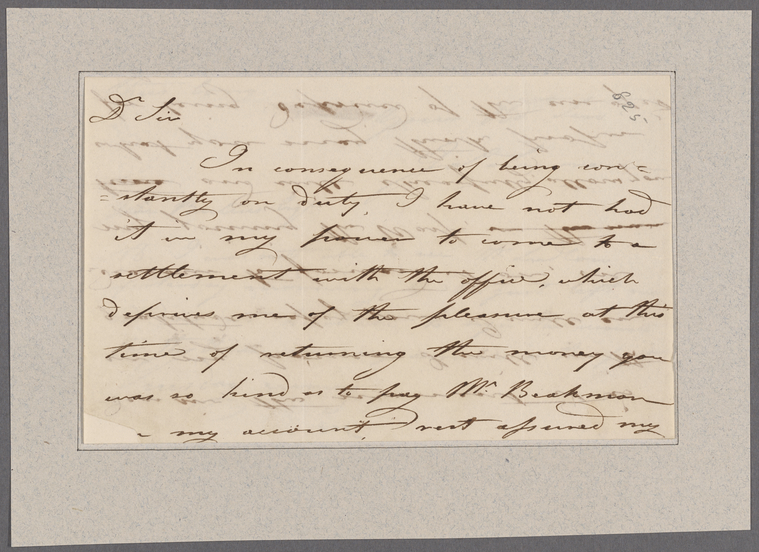 Dr Sir
In consequence of being con=
=stantly on duty I have not had
it in my power to come to a
settlement with the office, which
deprives me of the pleasure at this
time of returning the money you
was so kind as to pay Mr. Beekman
my account, rest assured my